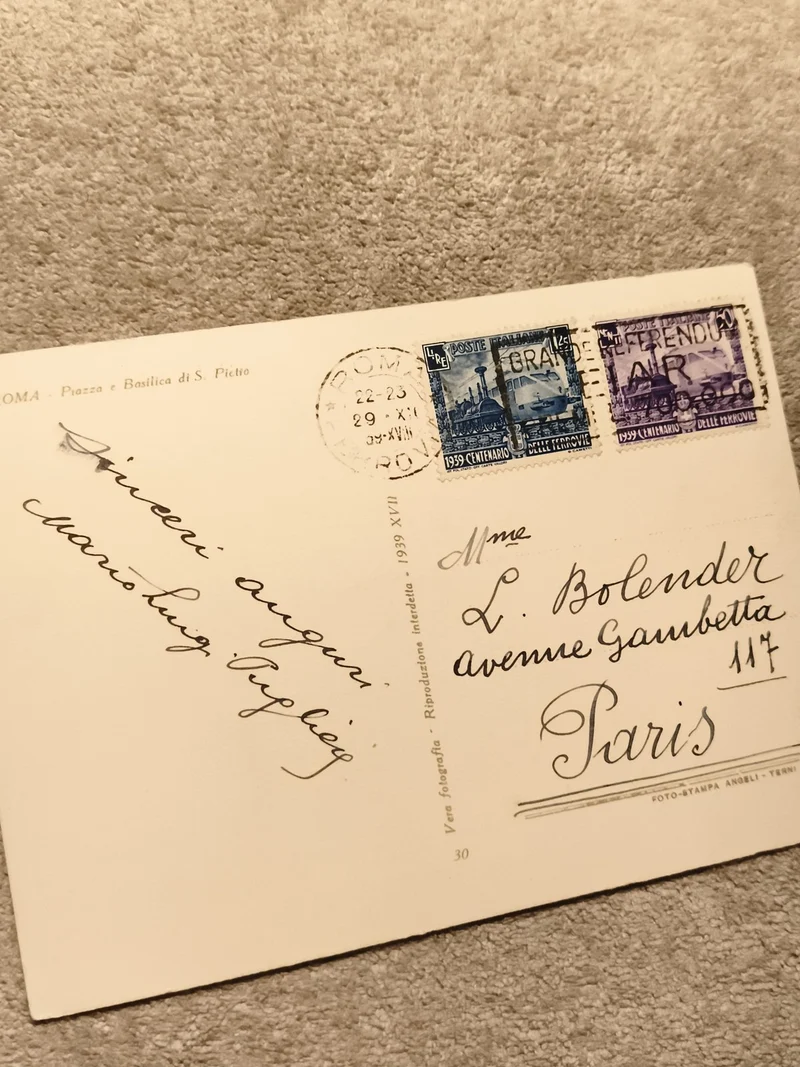 ROMA - Piazza e Basilica di S. Pietro
Sinceri auguri
Mario Luigi Pugliese
ROMA
22-23
29 · XII
39-XVIII
GRANDE REFERENDUM
LIRE POSTE ITALIANE 1,25
1939 CENTENARIO DELLE FERROVIE
CENT POSTE ITALIANE 50
1939 CENTENARIO DELLE FERROVIE
Vera fotografia - Riproduzione interdetta - 1939 XVII
30
Mme
L. Bolender
Avenue Gambetta
117
Paris
FOTO-STAMPA ANGELI - TERNI